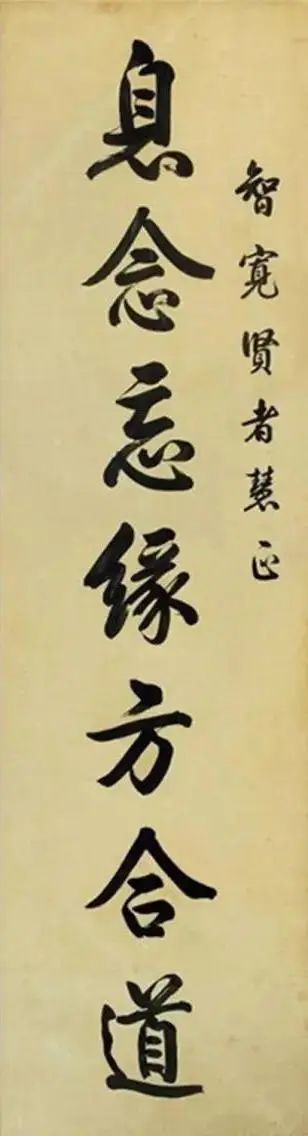 智寬贤者慧正
息念忘缘方合道